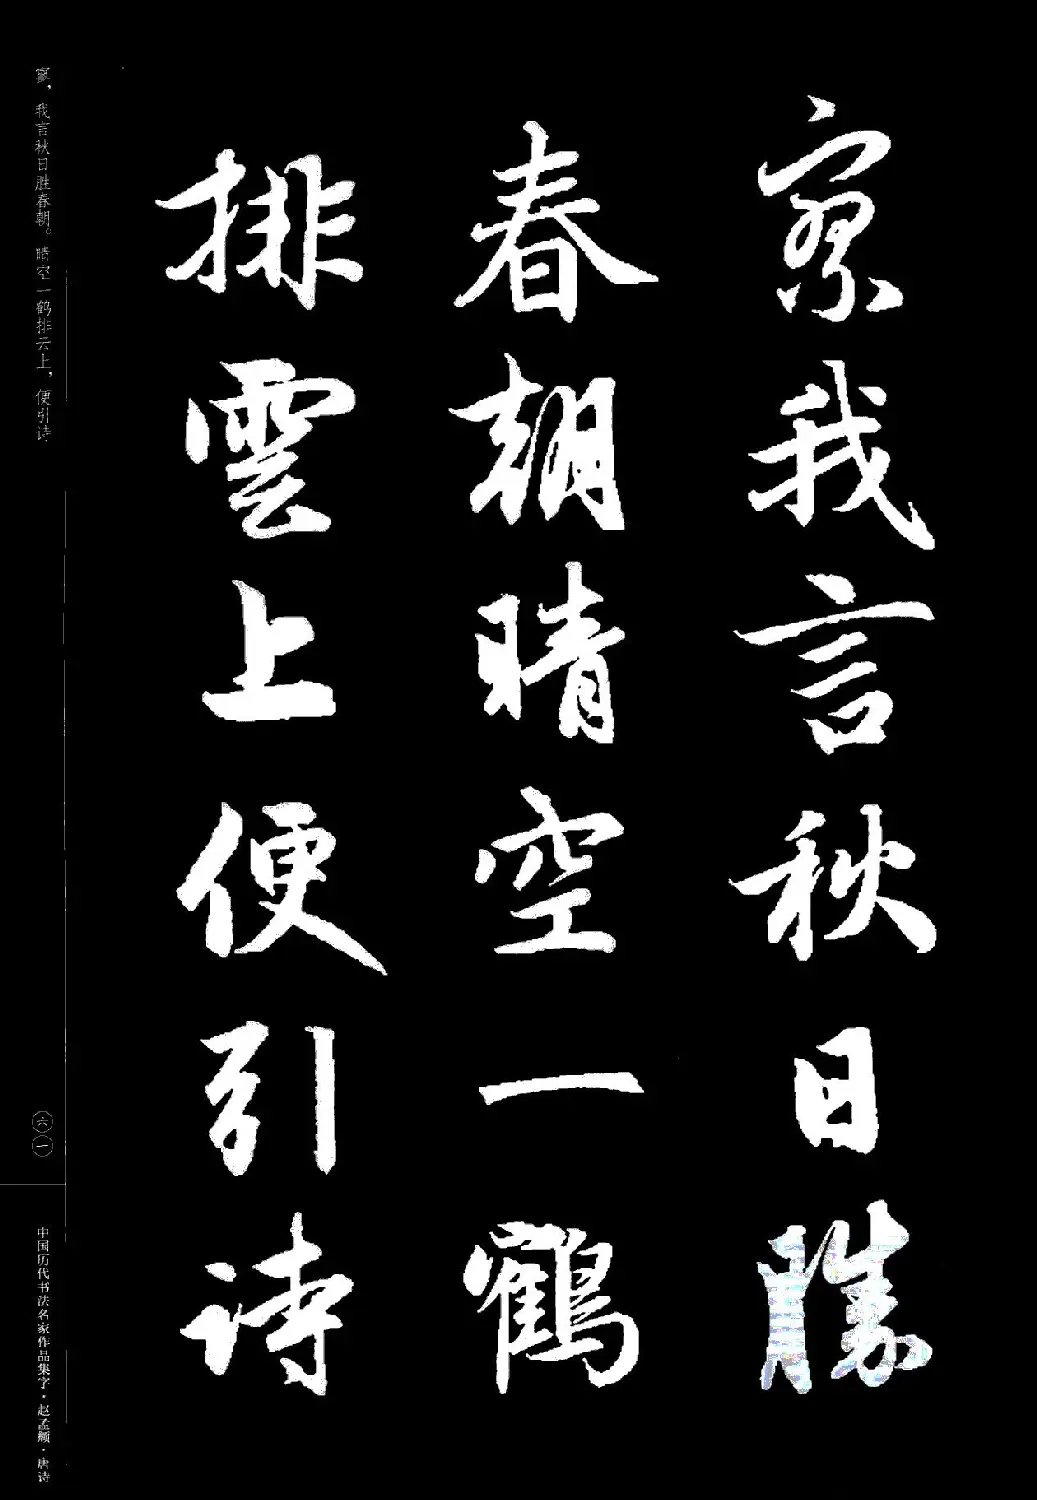 寥我言秋日勝
春朝晴空一鶴
排雲上便引詩
寥，我言秋日胜春朝。晴空一鹤排云上，便引诗
六一
中国历代书法名家作品集字·赵孟頫·唐诗